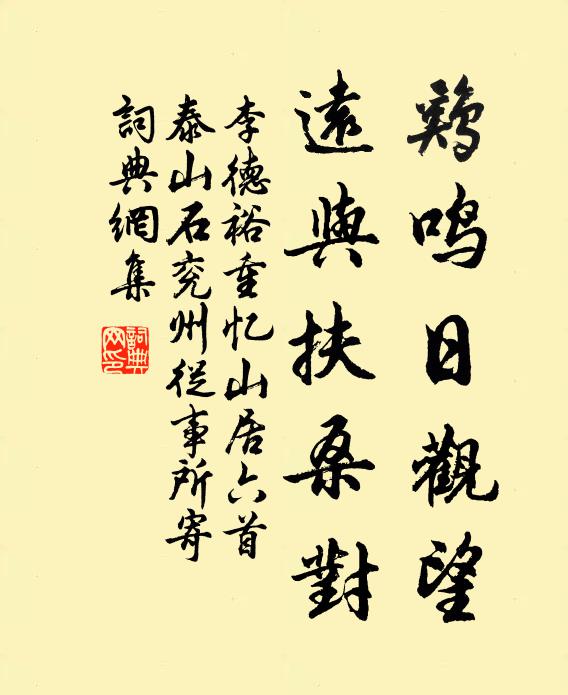 鷄鳴日觀望
遠與扶桑對
李德裕重忆山居六首
泰山石兖州從事所寄
詞典網集
詞典
网印